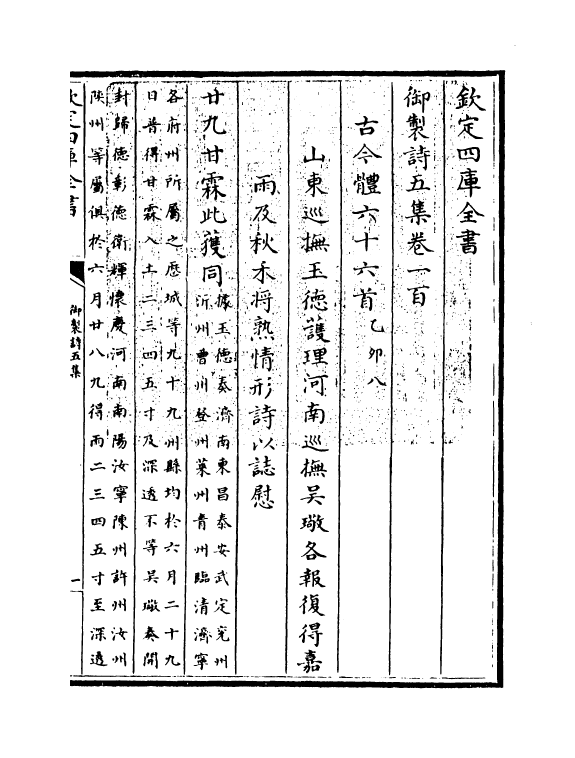 欽定四庫全書
御製詩五集卷一百
古今體六十六首乙卯八
山東巡撫玉德護理河南巡撫吳璥各報復得嘉
雨及秋禾將熟情形詩以誌慰
廿九甘霖此獲同據玉德奏濟南東昌泰安武定兗州
沂州曹州登州萊州青州臨清濟寧
各府州所屬之歷城等九十九州縣均於六月二十九
日普得甘霖入土二三四五寸及深透不等吳璥奏開
封歸德彰德衛輝懷慶河南南陽汝寧陳州許州汝州
陜州等屬俱於六月廿八九得雨二三四五寸至深透
欽定四庫全書
御製詩五集
一